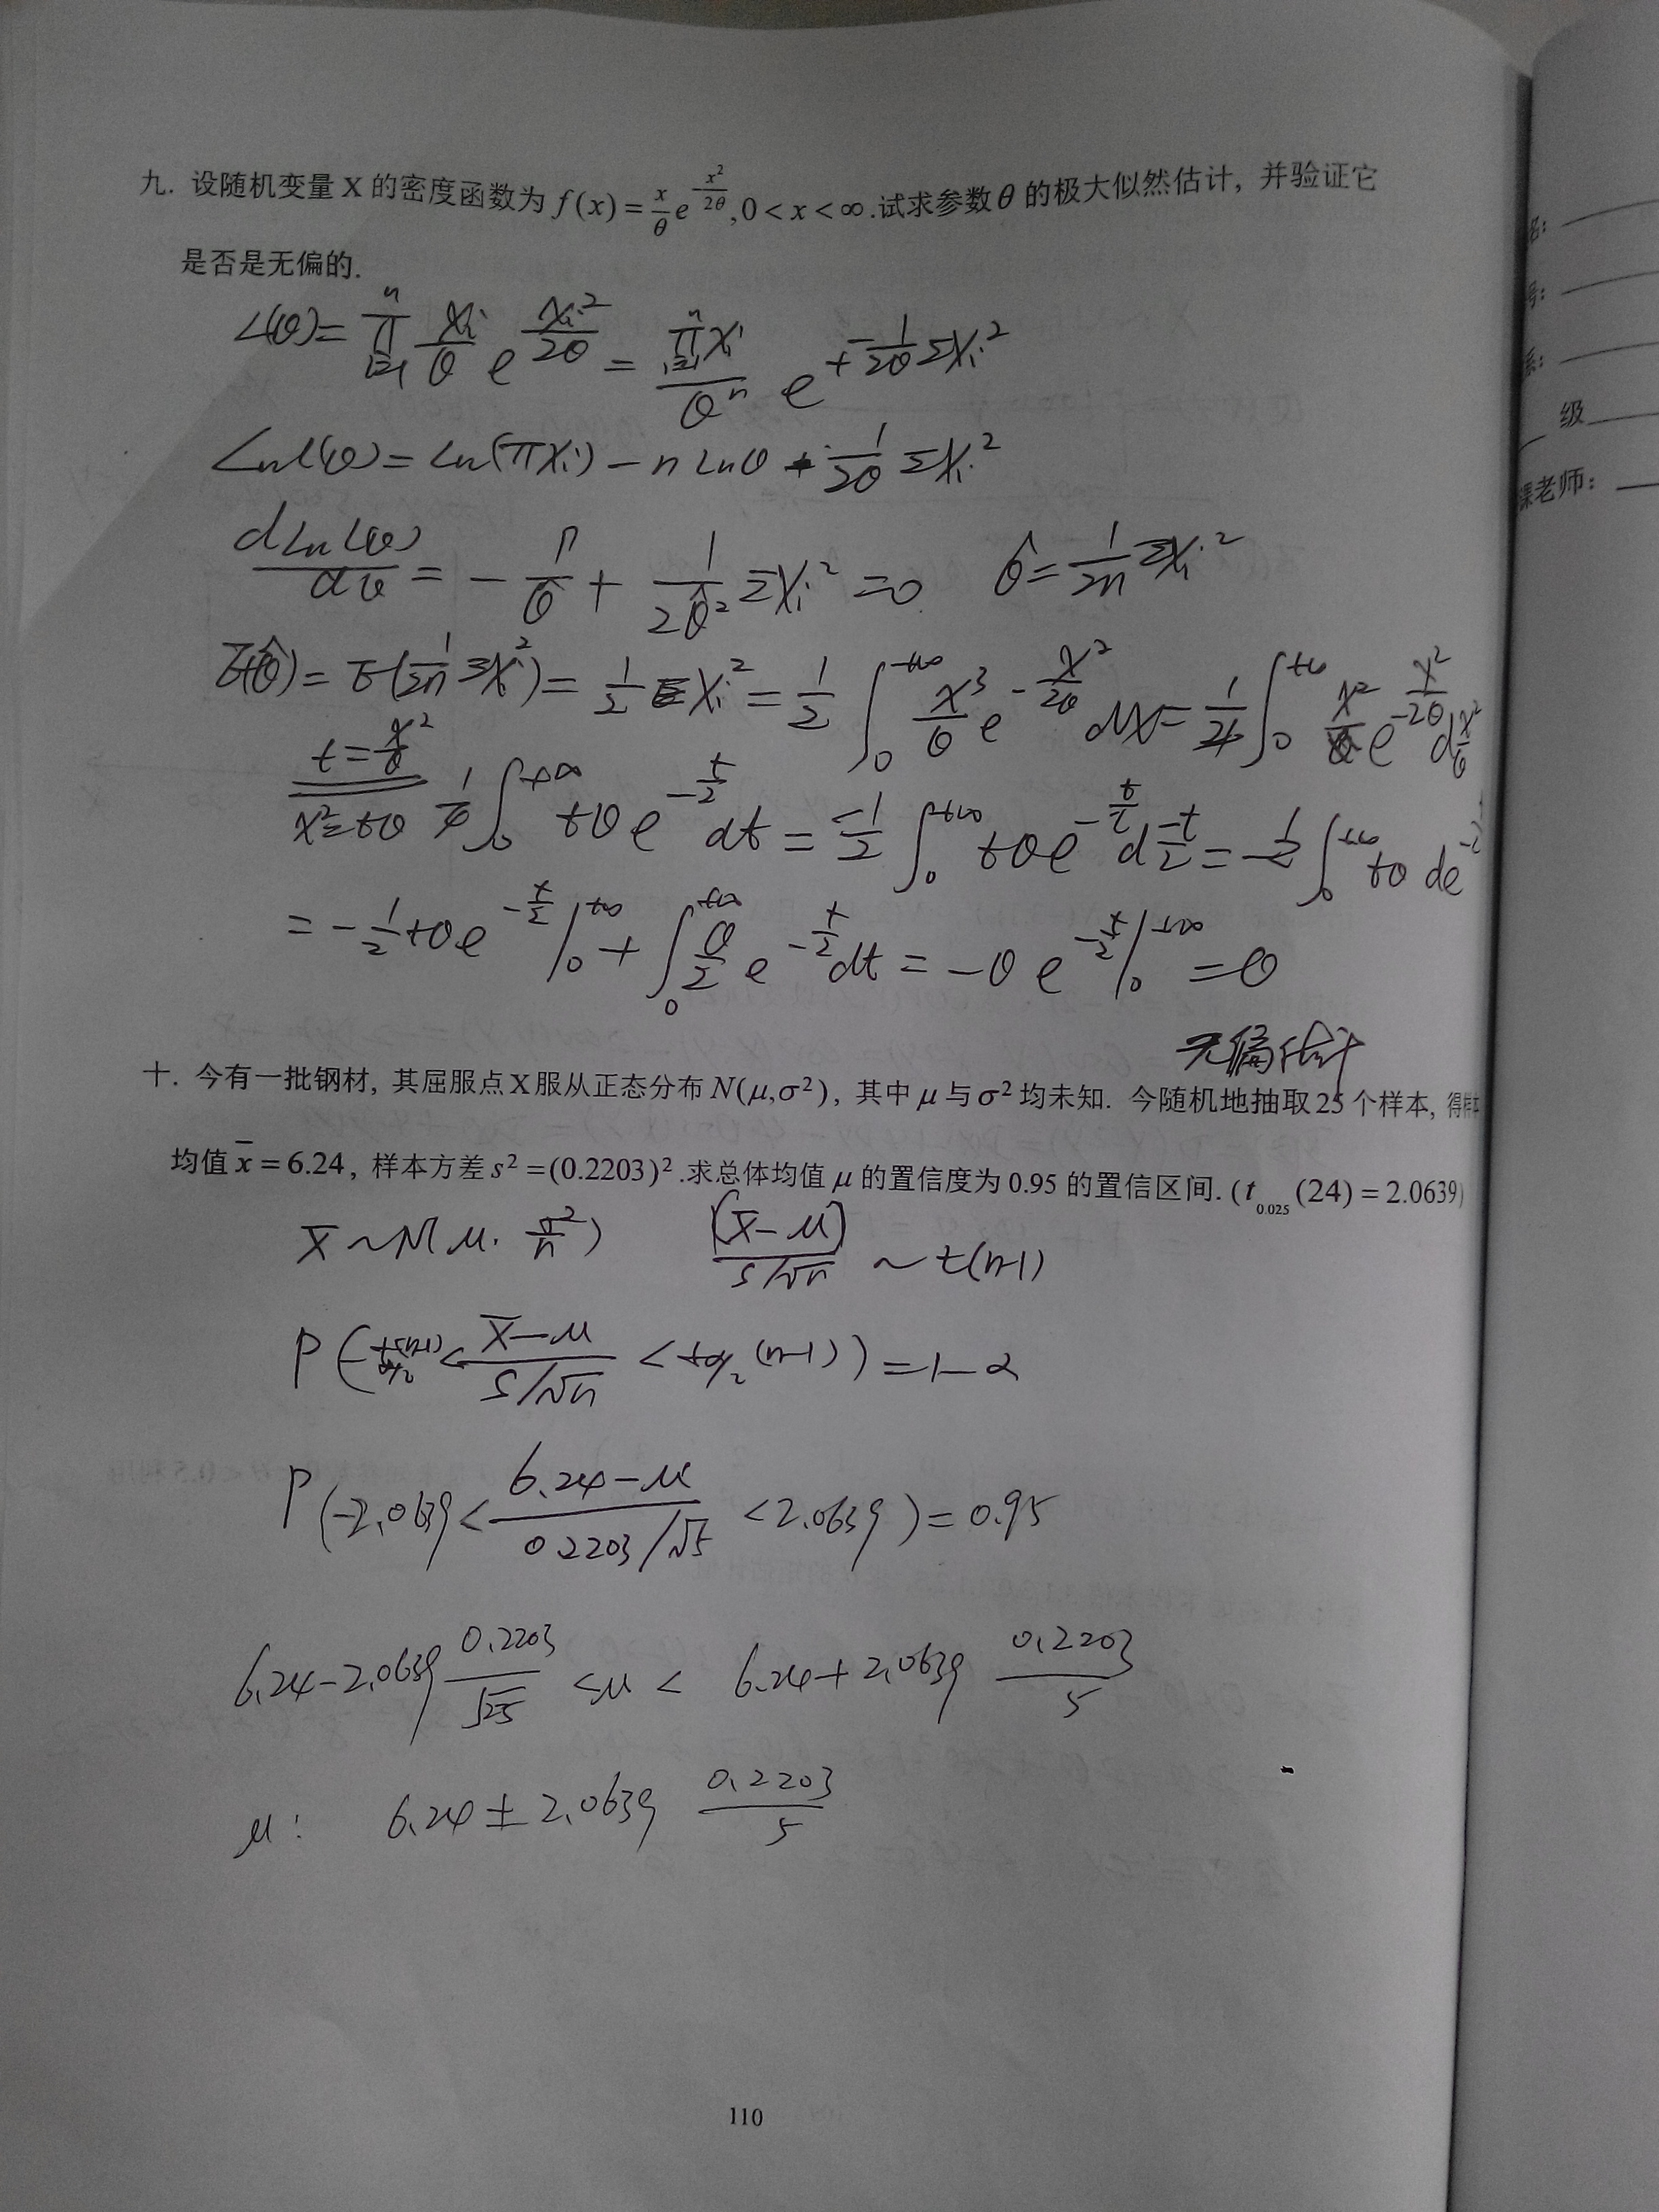 九. 设随机变量 X 的密度函数为 f(x) = x/θ e^{x²/2θ}, 0 < x < ∞ .试求参数 θ 的极大似然估计, 并验证它
是否是无偏的.
L(θ) = ∏_{i=1}^{n} xi/θ e^{xi²/2θ} = ∏_{i=1}^{n} xi / θ^n e^{-1/2θ Σxi²}
Ln L(θ) = Ln(πxi) - n Lnθ - 1/2θ Σxi²
dLn L(θ)/dθ = - n/θ + 1/2θ² Σxi² = 0 θ̂ = 1/2n Σxi²
E(θ̂) = E(1/2n Σxi²) = 1/2 E xi² = 1/2 ∫_0^{+∞} x³/θ e^{-x²/2θ} dx = 1/4 ∫_0^{+∞} x² e^{-x²/2θ} d x²/θ
t = x²/θ x² = tθ 1/4 ∫_0^{+∞} tθ e^{-t/2} dt = -1/2 ∫_0^{+∞} tθ e^{-t/2} d -t/2 = -1/2 ∫_0^{+∞} tθ de
= -1/2 tθ e^{-t/2} |_0^{+∞} + ∫_0^{+∞} θ/2 e^{-t/2} dt = -θ e^{-t/2} |_0^{+∞} = θ
无偏估计
十. 今有一批钢材, 其屈服点 X 服从正态分布 N(μ,σ²), 其中 μ 与 σ² 均未知. 今随机地抽取 25 个样本, 得样本
均值 x̄ = 6.24, 样本方差 s² = (0.2203)² .求总体均值 μ 的置信度为 0.95 的置信区间. (t_{0.025}(24) = 2.0639)
x̄ ~ N(μ, σ²/n) (x̄-μ)/(s/√n) ~ t(n-1)
P(-t_{α/2}(n-1) < (x̄-μ)/(s/√n) < t_{α/2}(n-1)) = 1-α
P(-2.0639 < (6.24-μ)/(0.2203/√5) < 2.0639) = 0.95
6.24-2.0639 0.2203/√25 < μ < 6.24+2.0639 0.2203/5
μ: 6.24 ± 2.0639 0.2203/5
110
号:
级
课老师: